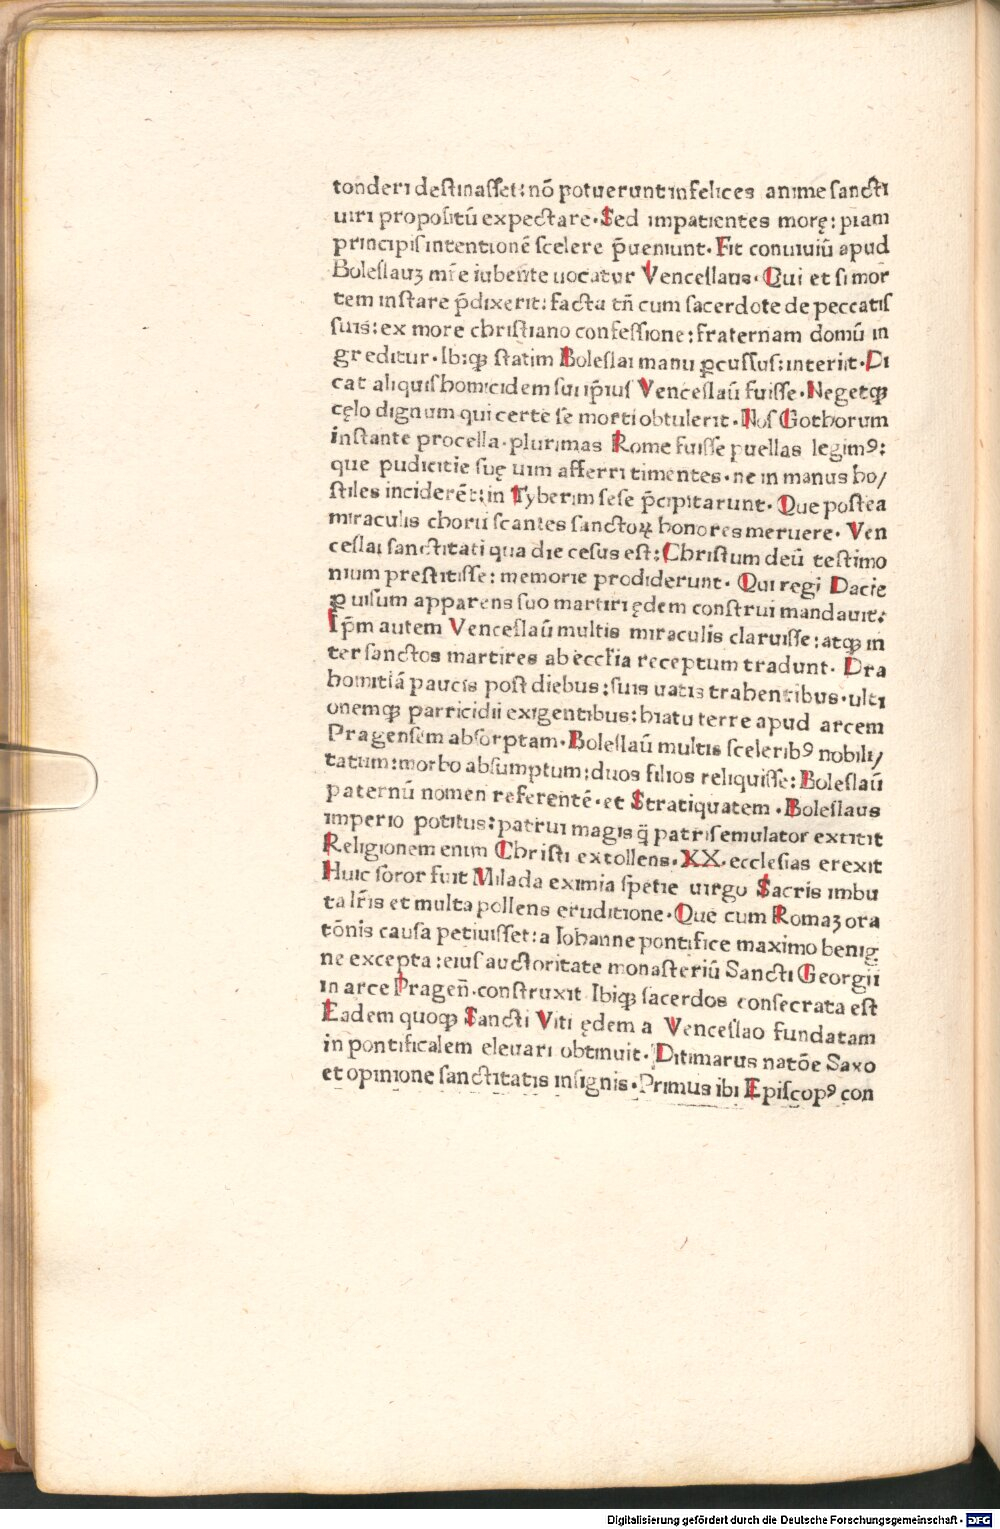 tonderi destinasset: nõ potuerunt infelices anime sancti
uiri propositũ expectare. Sed impatientes morę: piam
principis intentionẽ scelere p̃ueniunt. Fit conuiuiũ apud
Boleslauȝ mr̃e iubente uocatur Vencessaus. Qui et si mor
tem instare p̃dixerit: facta tñ cum sacerdote de peccatis
suis: ex more christiano confessione: fraternam domũ in
greditur. Ibiqꝫ statim Boleslai manu ꝑcussus: interiit. Di
cat aliquis homicidem sui ip̃ius Venceslaũ fuisse. Negetqꝫ
cęlo dignum qui certe se morti obtulerit. Nos Gothorum
instante procella. plurimas Rome fuisse puellas legimꝰ:
que pudicitie suę uim afferri timentes. ne in manus ho/
stiles inciderẽt: in Tyberim sese p̃cipitarunt. Que postea
miraculis choruscantes sanctoꝝ honores meruere. Ven
ceslai sanctitati qua die cesus est: Christum deũ testimo
nium prestitisse: memorie prodiderunt. Qui regi Dacie
ꝑ uisum apparens suo martiri ędem construi mandauit:
Ip̃m autem Venceslaũ multis miraculis claruisse: atqꝫ in
ter sanctos martires ab eccl̃ia receptum tradunt. Dra
homitiã paucis post diebus: suis uatis trahentibus. ulti
onemqꝫ parricidii exigentibus: hiatu terre apud arcem
Pragensem absorptam. Boleslaũ multis sceleribꝰ nobili/
tatum: morbo absumptum: duos filios reliquisse: Boleslaũ
paternũ nomen referentẽ. et Stratiquatem. Boleslaus
imperio potitus: patrui magis q̃ patris emulator extitit
Religionem enim Christi extollens. XX. ecclesias erexit
Huic soror fuit Milada eximia spetie uirgo Sacris imbu
ta lr̃is et multa pollens eruditione. Que cum Romaȝ ora
tõnis causa petiuisset: a Iohanne pontifice maximo benig
ne excepta: eius auctoritate monasteriũ Sancti Georgii
in arce Prageñ. construxit Ibiqꝫ sacerdos consecrata est
Eadem quoqꝫ Sancti Viti ędem a Venceslao fundatam
in pontificalem eleuari obtinuit. Ditimarus natõe Saxo
et opinione sanctitatis insignis. Primus ibi Episcopꝰ con
Digitalisierung gefördert durch die Deutsche Forschungsgemeinschaft - DFG